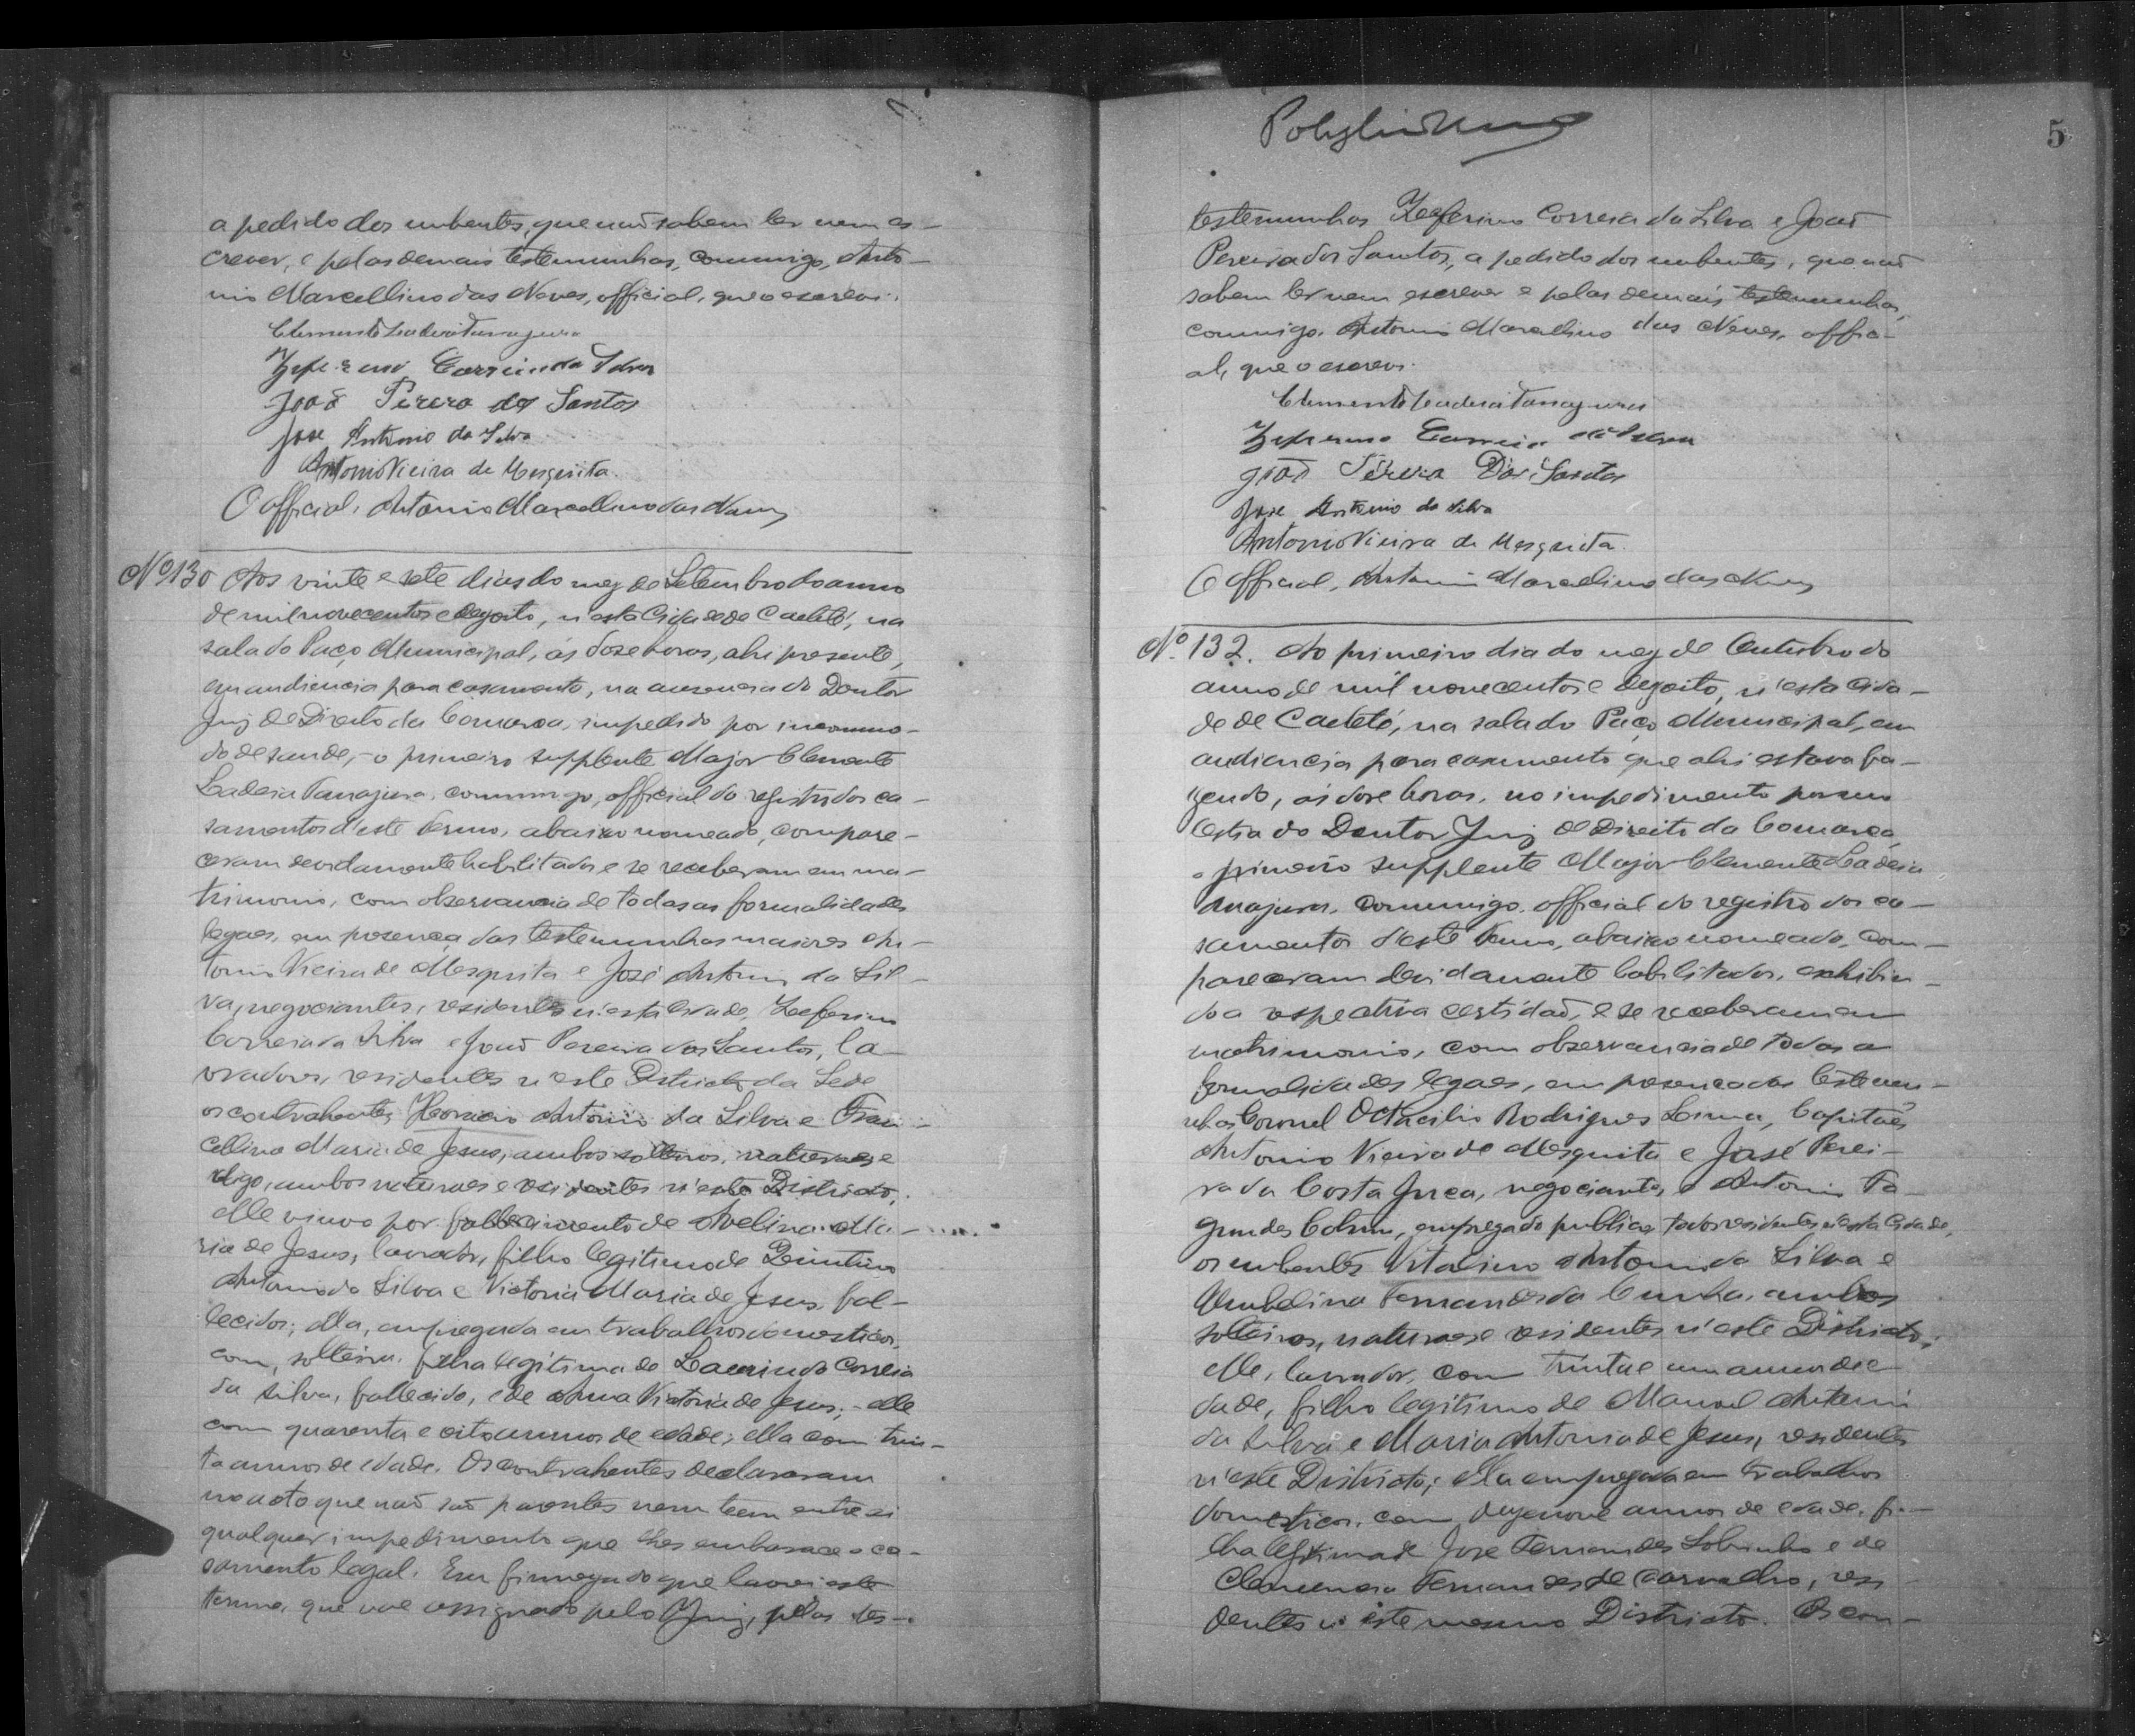 a pedido dos nubentes, que não sabem ler nem es-
crever, e pelas demais testemunhas, commigo, Anto-
nio Marcellino das Neves, official, que o escrevi.
Clemente Ladeia Tanajura
Zeferino Correia da Silva
João Perera dos Santos
Jose Antonio da Silva
Antonio Vieira de Mesquita.
O official, Antonio Marcellino das Neves
Nº 130 Aos vinte e sete dias do mez de Setembro do anno
de mil novecentos e dezoito, n'esta Cidade de Caeteté, na
sala do Paço Municipal, ás doze horas, ahi presente,
em audiencia para casamento, na ausencia do Doutor
Juiz de Direito da Comarca, impedido por incommo-
do de saude, - o primeiro supplente Major Clemente
Ladeia Tanajura, commigo, official do registro dos ca-
samentos d'este Termo, abaixo nomeado, compare-
ceram devidamente habilitados e se receberam em ma-
trimonio, com observancia de todas as formalidades
legaes, em presença das testemunhas maiores An-
tonio Vieira de Mesquita e José Antonio da Sil-
va, negociantes, residentes n'esta cidade, Zeferino
Correia da Silva e João Pereira dos Santos, la-
vradores, residentes n'este Districto da Sede
os contrahentes Horacio Antonio da Silva e Fran-
cellina Maria de Jesus, ambos solteiros, naturaes e
digo, ambos naturaes e residentes n'este Districto,
elle viuvo por fallecimento de Avelina Ma-
ria de Jesus, lavrador, filho legitimo de Quintino
Antonio da Silva e Victoria Maria de Jesus, fal-
lecidos; ella, empregada em trabalhos domesticos,
com, solteira, filha legitima de Laurindo Correia
da Silva, fallecido, e de Anna Victoria de Jesus; - elle
com quarenta e oito annos de edade; ella com trin-
ta annos de edade. Os contrahentes declararam
no acto que não são parentes nem teem entre si
qualquer impedimento que lhes embarace o ca-
samento legal. Em firmeza do que lavrei este
termo, que vae assignado pelo Juiz, pelas tes-
5
testemunhas Zeferino Correia da Silva e João
Pereira dos Santos, a pedido dos nubentes, que não
sabem ler nem escrever e pelas demais testemunhas,
commigo, Antonio Marcellino das Neves, offici-
al, que o escrevi.
Clemente Ladeia Tanajura
Zeferino Correia da Silva
João Péreira Dos Santos
Jose Antonio da Silva
Antonio Vieira de Mesquita.
O official, Antonio Marcellino das Neves
Nº 132. Ao primeiro dia do mez de Outubro do
anno de mil novecentos e dezoito, n'esta Cida-
de de Caeteté, na sala do Paço Municipal, em
audiencia para casamento que ahi estava fa-
zendo, ás doze horas, no impedimento por mo-
lestia do Doutor Juiz de Direito da Comarca,
o primeiro supplente Major Clemente Ladeia
Tanajura, commigo, official do registro dos ca-
samentos d'este Termo, abaixo nomeado, com-
pareceram devidamente habilitados, exhibin-
do a respectiva certidão, e se receberam em
matrimonio, com observancia de todas a
formalidades legaes, em presença das testemu-
nhas Coronel Octacilio Rodrigues Lima, Capitão
Antonio Vieira de Mesquita e José Perei-
ra da Costa Juca, negociantes, e Antonio Fa-
gundes Cotrim, empregado publico, todos residentes n'esta Cidade,
os nubentes Vitalino Antonio da Silva e
Umbelina Fernandes da Cunha, ambos
solteiros, naturaes e residentes n'este Districto;
elle, lavrador, com trinta e um annos de e
dade, filho legitimo de Manoel Antonio
da Silva e Maria Antonia de Jesus, residentes
n'este Districto; ella empregada em trabalhos
domesticos, com dezenove annos de edade, fi-
lha legitima de Jose Fernandes Sobrinho e de
Clemencia Fernandes de Carvalho, resi-
dentes n'este mesmo Districto. Os con-